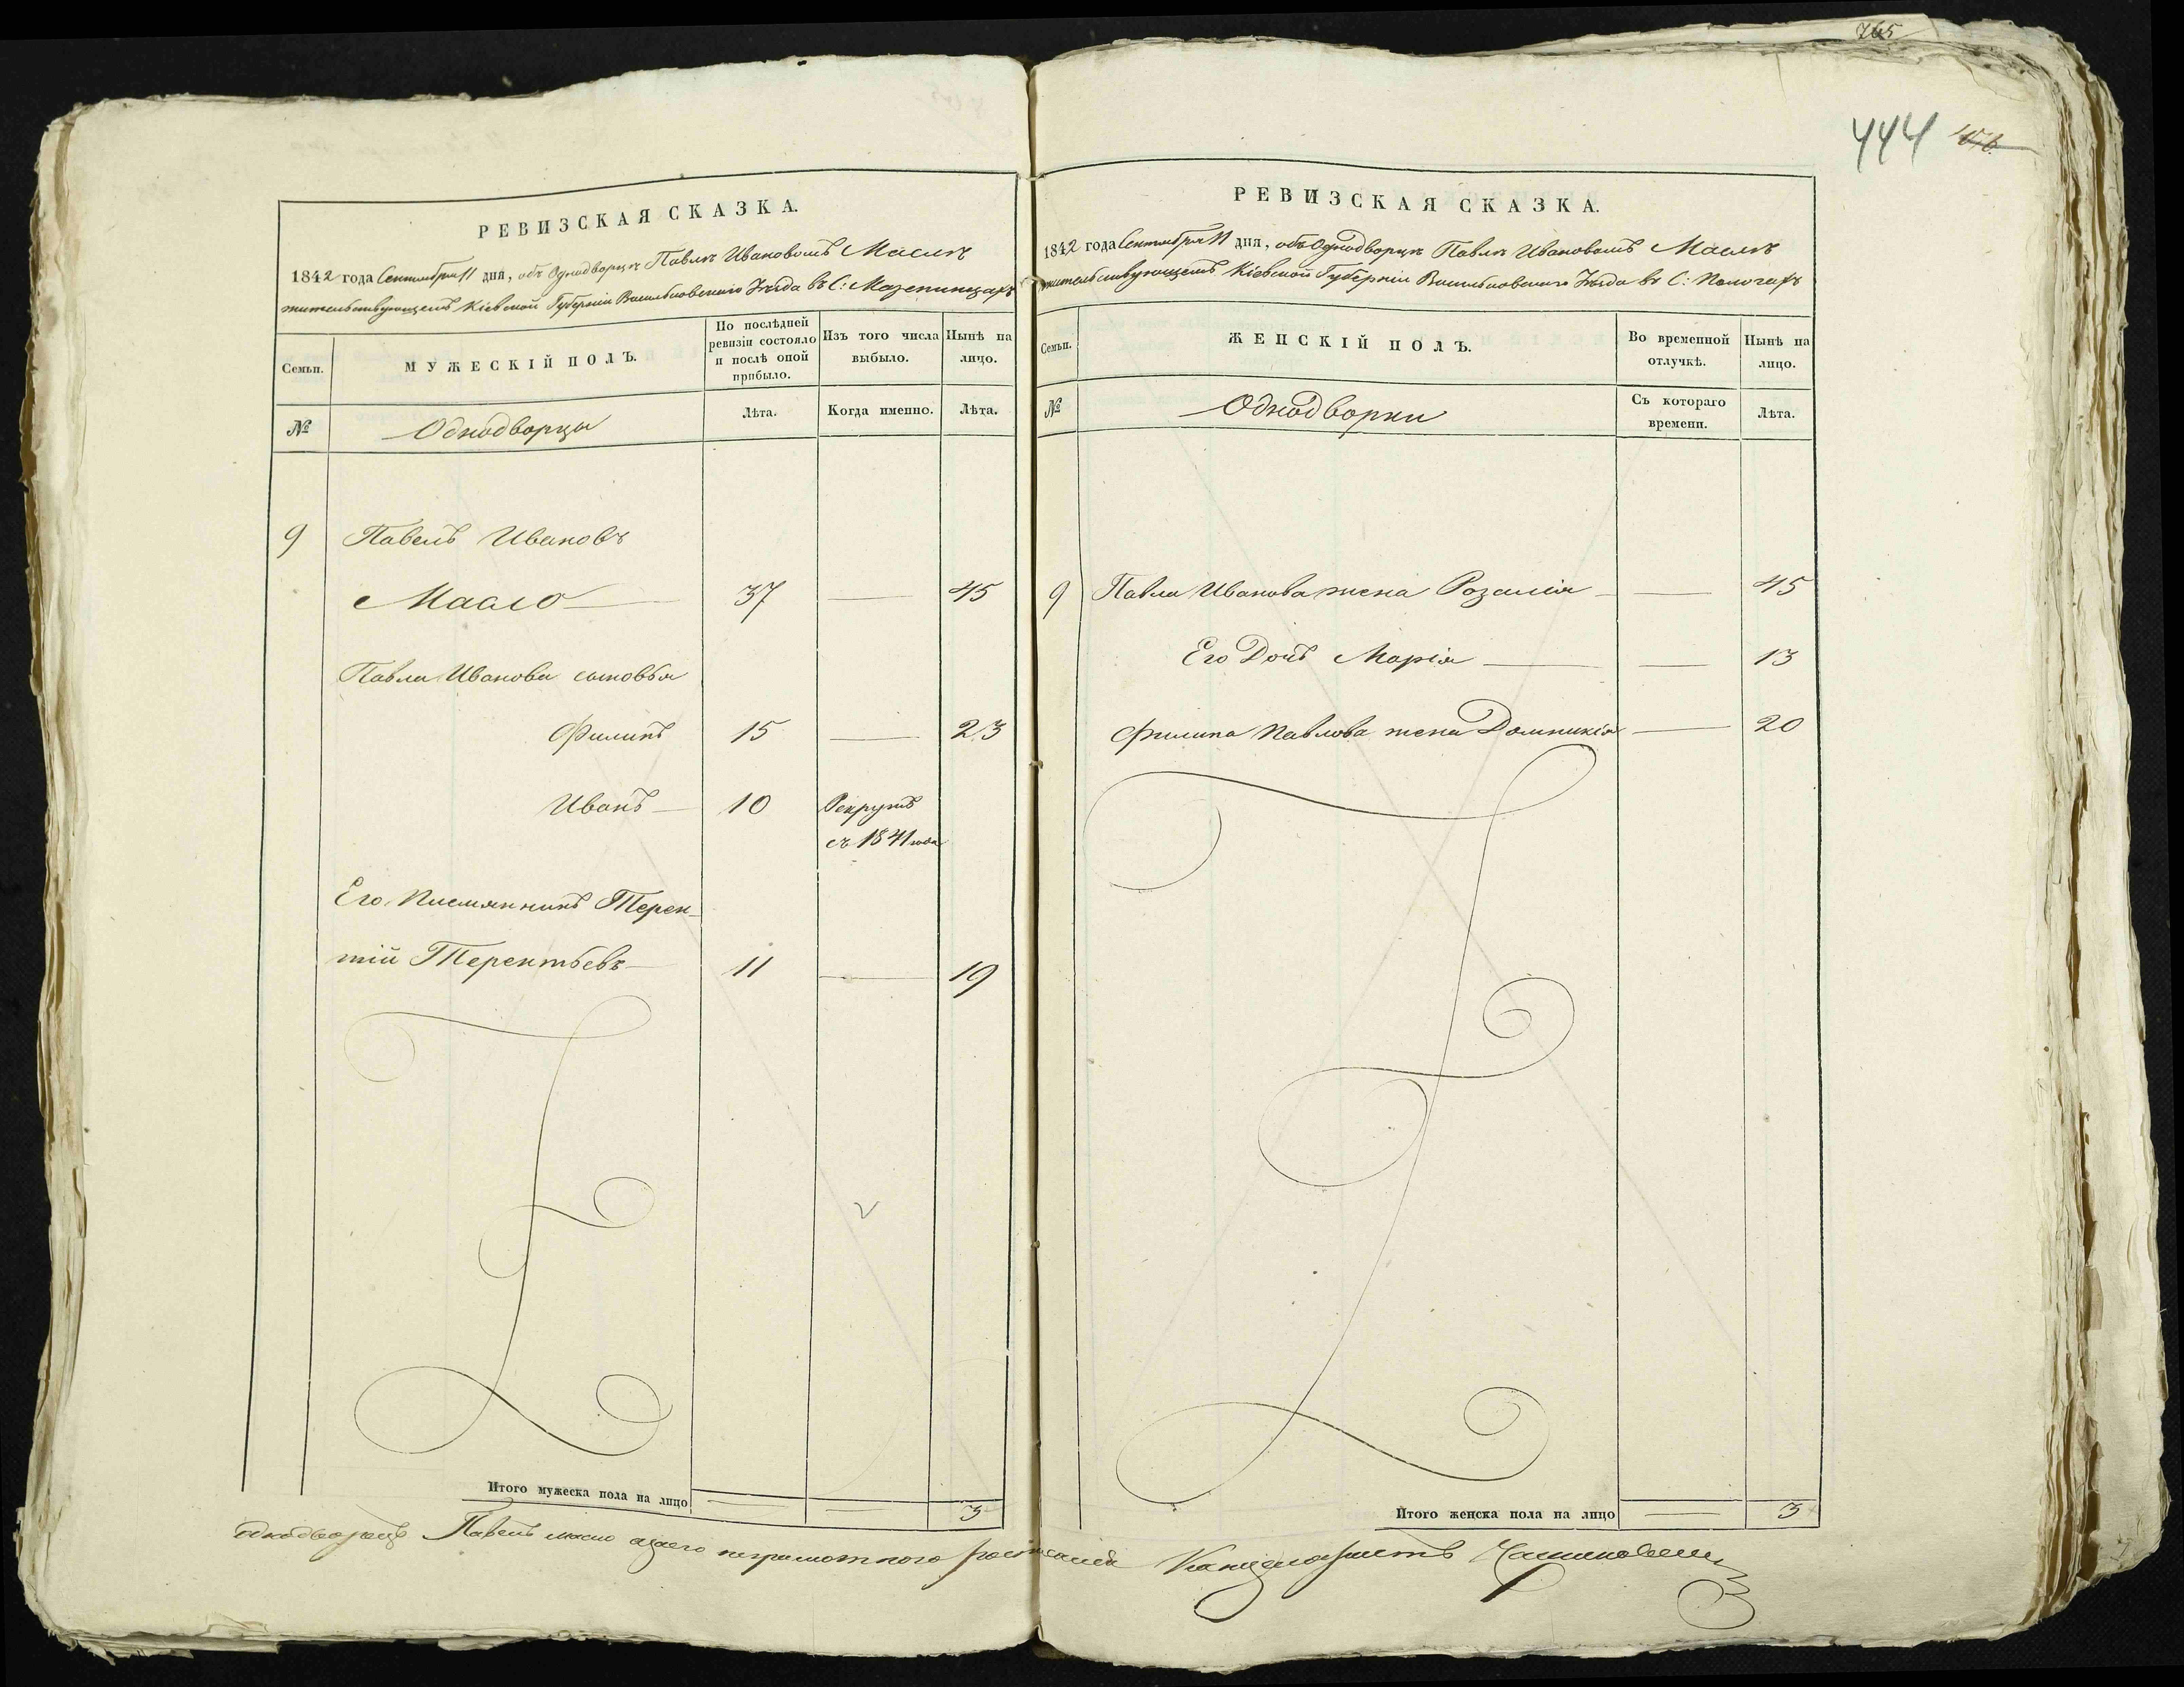 765
444
РЕВИЗСКАЯ СКАЗКА.
1842 года Сентября 11 дня, объ Однодворцѣ Павлѣ Ивановомъ Маслѣ
жительствующемъ Кіевской Губерніи Васильковскаго Уѣзда въ С: Мазепинцахъ
Семьи.
МУЖЕСКІЙ ПОЛЪ.
По послѣдней ревизіи состояло и послѣ оной прибыло.
Изъ того числа выбыло.
Нынѣ на лицо.
№
Однодворцы
Лѣта.
Когда именно.
Лѣта.
9 Павелъ Ивановъ
Масло 37 45
Павла Иванова сыновья
Филипъ 15 23
Иванъ 10 Рекрутъ
съ 1841 года
Его Племянникъ Терен-
тій Терентьевъ 11 19
Итого мужеска пола на лицо 3
РЕВИЗСКАЯ СКАЗКА.
1842 года Сентября 11 дня, объ Однодворцѣ Павлѣ Ивановомъ Маслѣ
жительствующемъ Кіевской Губерніи Васильковскаго Уѣзда въ С:
Семьи.
ЖЕНСКІЙ ПОЛЪ.
Во временной отлучкѣ.
Нынѣ на лицо.
№
Однодворки
Съ котораго времени.
Лѣта.
9 Павла Иванова жена Розалія 45
Его Дочь Марія 13
Филипа Павлова жена Домникія 20
Итого женска пола на лицо 3
однодворецъ Павелъ масло азаего неграмотного росписался Канцеляристъ